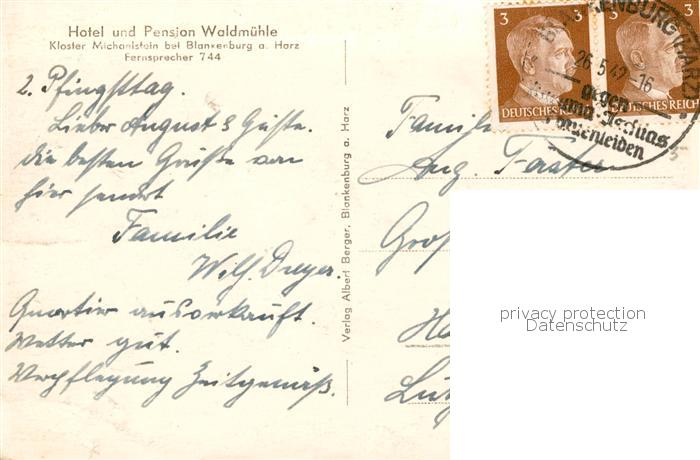 Hotel und Pension Waldmühle
Kloster Michaelstein bei Blankenburg a. Harz
Fernsprecher 744
2. Pfingsttag.
Lieber August & Guste.
Die besten Grüße von
hier sendet
Familie
Wilh. Dreyer.
Quartier ausverkauft.
Wetter gut.
Verpflegung Zeitgemäß.
Verlag Albert Berger, Blankenburg a. Harz
3 3
DEUTSCHES REICH
DEUTSCHES REICH
BLANKENBURG (HARZ)
26.5.42-16
gegen
und Ischias
leiden
Familie
Aug.
Gro
Lu
privacy protection
Datenschutz